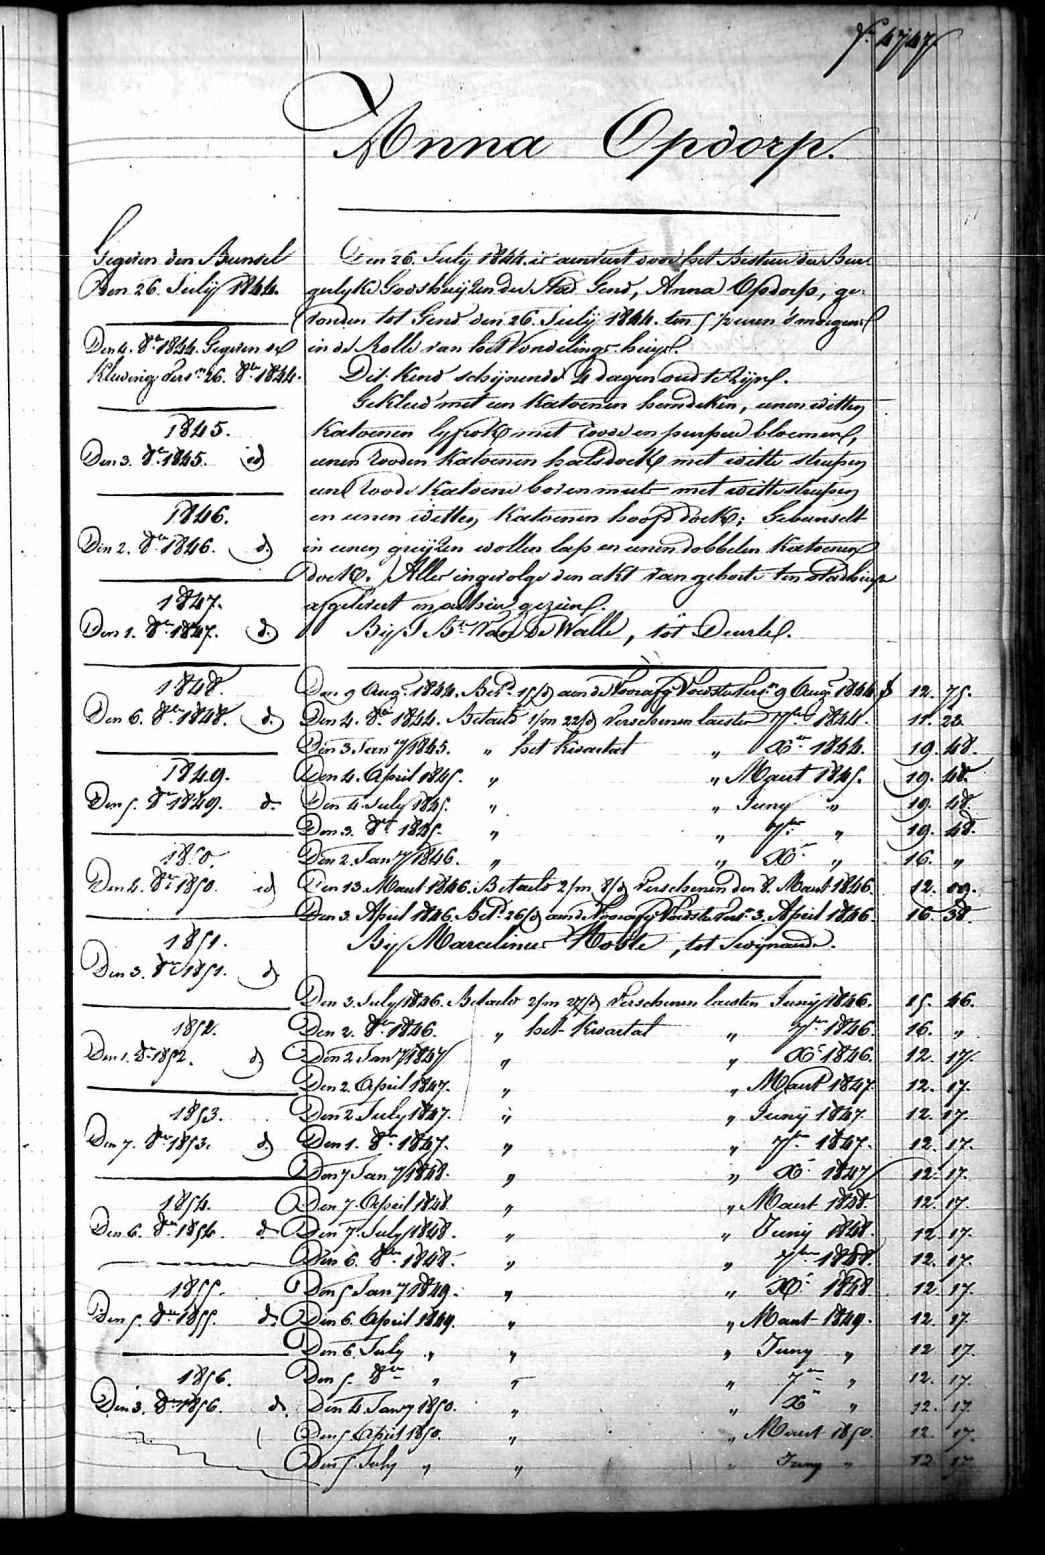 N.º 4747
Anna Opdorp.
Gegeven den Bunsel
Den 26. Julij 1844.
Den 4. 8bre 1844. Gegeven de
Kleding Vers.n 26. 8bre 1844.
1845.
Den 3. 8bre 1845. id
1846.
Den 2. 8bre 1846. d.
1847.
Den 1. 8bre 1847. d.
1848.
Den 6. 8bre 1848. d.
1849.
Den 5. 8bre 1849. d.
1850.
Den 4. 8bre 1850. id
1851.
Den 3. 8bre 1851. d
1852.
Den 1. 8bre 1852. d
1853.
Den 7. 8bre 1853. d
1854.
Den 6. 8bre 1854. d
1855.
Den 5. 8bre 1855. d.
1856.
Den 3. 8bre 1856. d.
Den 26. July 1844. is aenveert door het Bestuer der Bur-
gelyke Godshuijzen der Stad Gend, Anna Opdorp, ge-
vonden tot Gend den 26. July 1844. ten 5 ½ uren 's morgens
in de Rolle van het Vondelings huijs.
Dit Kind schijnende 4 dagen oud te Zijn.
Gekleed met een Katoenen hemdeken, eenen witten
Katoenen lyfrok met roode en purpere bloemen,
eenen rooden Katoenen halsdoek met witte streepen
eene roode Katoene bovenmuts met witte streepen
en eenen witten Katoenen hoofddoek; Gebunselt
in eenen grijzen wollen lap en eenen dobbelen Katoenen
doek. Alles ingevolge den akt van geboorte ten stadhuijze
afgelevert en alhier gezien.
Bij J. Bte Van De Walle, tot Deurle.
Den 9 Augt 1844. Betd 15/d aen de Voorafg Voedster Vers.n 9 Augt 1844 12. 75.
Den 4. 8bre 1844. Betaelt 1/m 22/d Verschenen laesten 7bre 1844. 11. 23
Den 3 Jany 1845. " het Kwartael " Xbre 1844. 19. 48.
Den 4. April 1845. " " Maart 1845. 19. 48.
Den 4 July 1845. " " Juny " 19. 48
Den 3. 8bre 1845. " " 7bre " 19. 48.
Den 2. Jany 1846. " " Xbre " 16. "
Den 13 Maart 1846. Betaelt 2/m 8/d Verschenen den 8. Maart 1846. 12. 09.
Den 3. April 1846. Betd 26/d aen de Voorafg Voedster Vers. 3. April 1846. 16 38.
Bij Marcelinus Hoste, tot Swijnaerde.
Den 3. July 1846. Betaelt 2/m 27/d Verschenen laesten Junij 1846. 15. 46.
Den 2. 8bre 1846. " het Kwartael " 7bre 1846. 16. "
Den 2 Jany 1847 " " Xbre 1846. 12. 17.
Den 2 April 1847. " " Maart 1847. 12. 17.
Den 2 July 1847. " " Junij 1847 12. 17.
Den 1. 8bre 1847. " " 7bre 1847. 12. 17.
Den 7 Jany 1848. " " Xbre 1847 12. 17.
Den 7. April 1848 " " Maart 1848. 12. 17.
Den 7. July 1848. " " Junij 1848. 12. 17.
Den 6. 8bre 1848. " " 7bre 1848. 12. 17.
Den 5 Jany 1849. " " Xbre 1848 12 17.
Den 6. April 1849. " " Maart 1849. 12. 17.
Den 6. July " " " Juny " 12 17.
Den 5. 8bre " " " 7bre " 12. 17.
Den 4 Jany 1850. " " Xbre " 12. 17
Den 5 April 1850. " " Maart 1850. 12. 17.
Den 5. July " " " Juny " 12 17